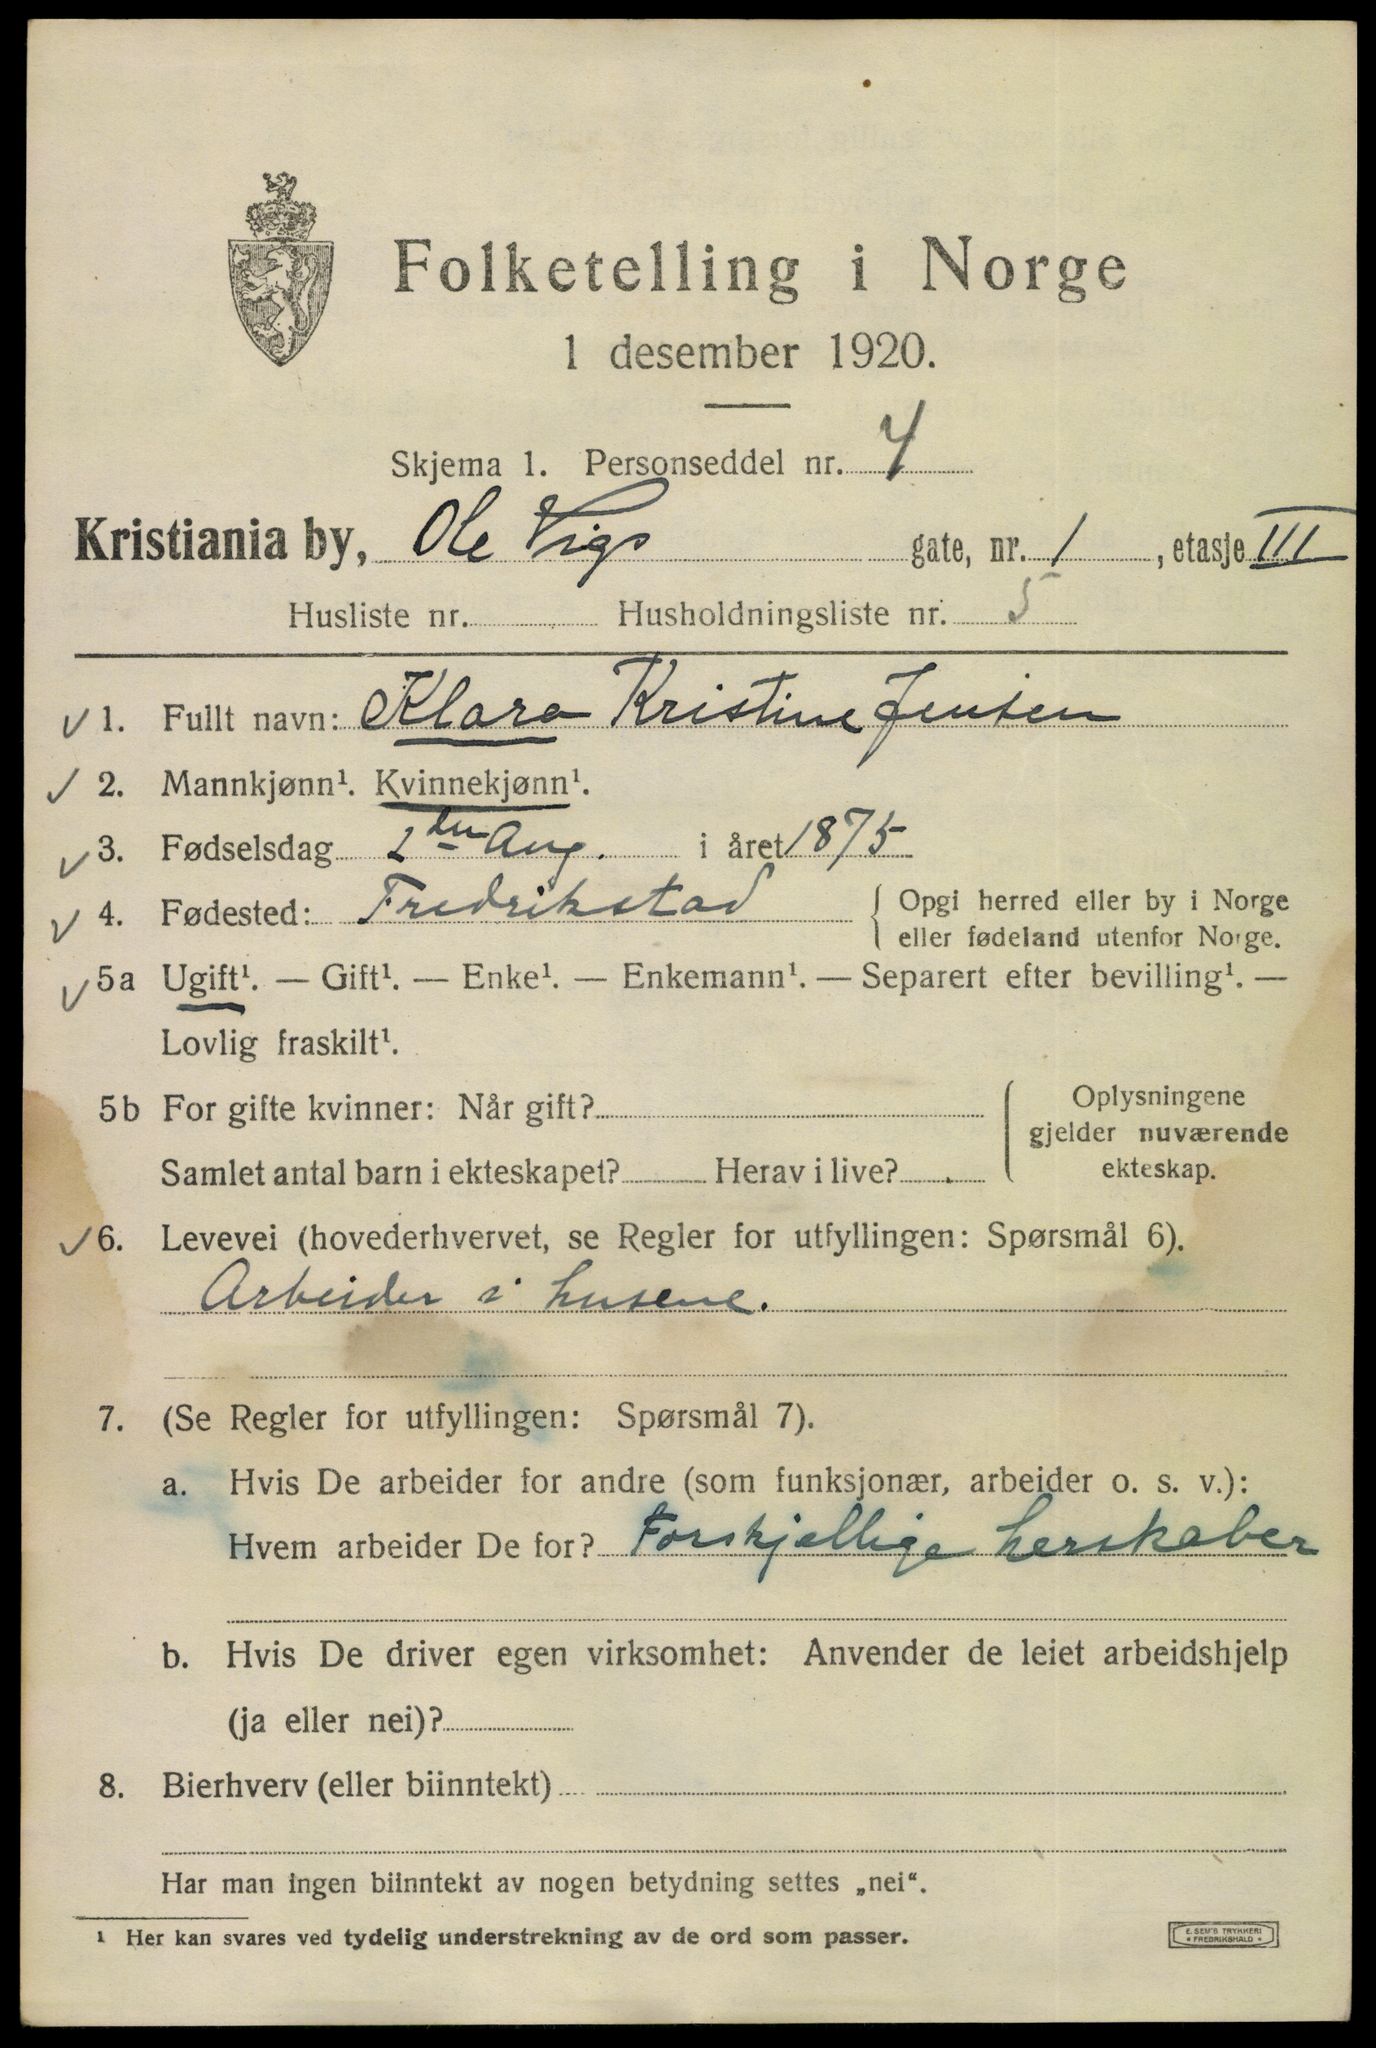 Folketelling i Norge
1 desember 1920.
Skjema 1. Personseddel nr. 4
Kristiania by, Ole Vigs gate, nr. 1, etasje III
Husliste nr. Husholdningsliste nr. 5
✓ 1. Fullt navn: Klara Kristine Jensen
✓ 2. Mannkjønn¹. Kvinnekjønn¹.
✓ 3. Fødselsdag 2den Aug. i året 1875
✓ 4. Fødested: Fredrikstad { Opgi herred eller by i Norge
eller fødeland utenfor Norge.
✓ 5a Ugift¹. — Gift¹. — Enke¹. — Enkemann¹. — Separert efter bevilling¹. —
Lovlig fraskilt¹.
5b For gifte kvinner: Når gift? { Oplysningene
gjelder nuværende
Samlet antal barn i ekteskapet? Herav i live? ekteskap.
✓ 6. Levevei (hovederhvervet, se Regler for utfyllingen: Spørsmål 6).
Arbeider i husene.
7. (Se Regler for utfyllingen: Spørsmål 7).
a. Hvis De arbeider for andre (som funksjonær, arbeider o. s. v.):
Hvem arbeider De for? Forskjellige herskaber
b. Hvis De driver egen virksomhet: Anvender de leiet arbeidshjelp
(ja eller nei)?
8. Bierhverv (eller biinntekt)
Har man ingen biinntekt av nogen betydning settes „nei“.
¹ Her kan svares ved tydelig understrekning av de ord som passer.
E. SEM'S TRYKKERI
* FREDRIKSHALD *